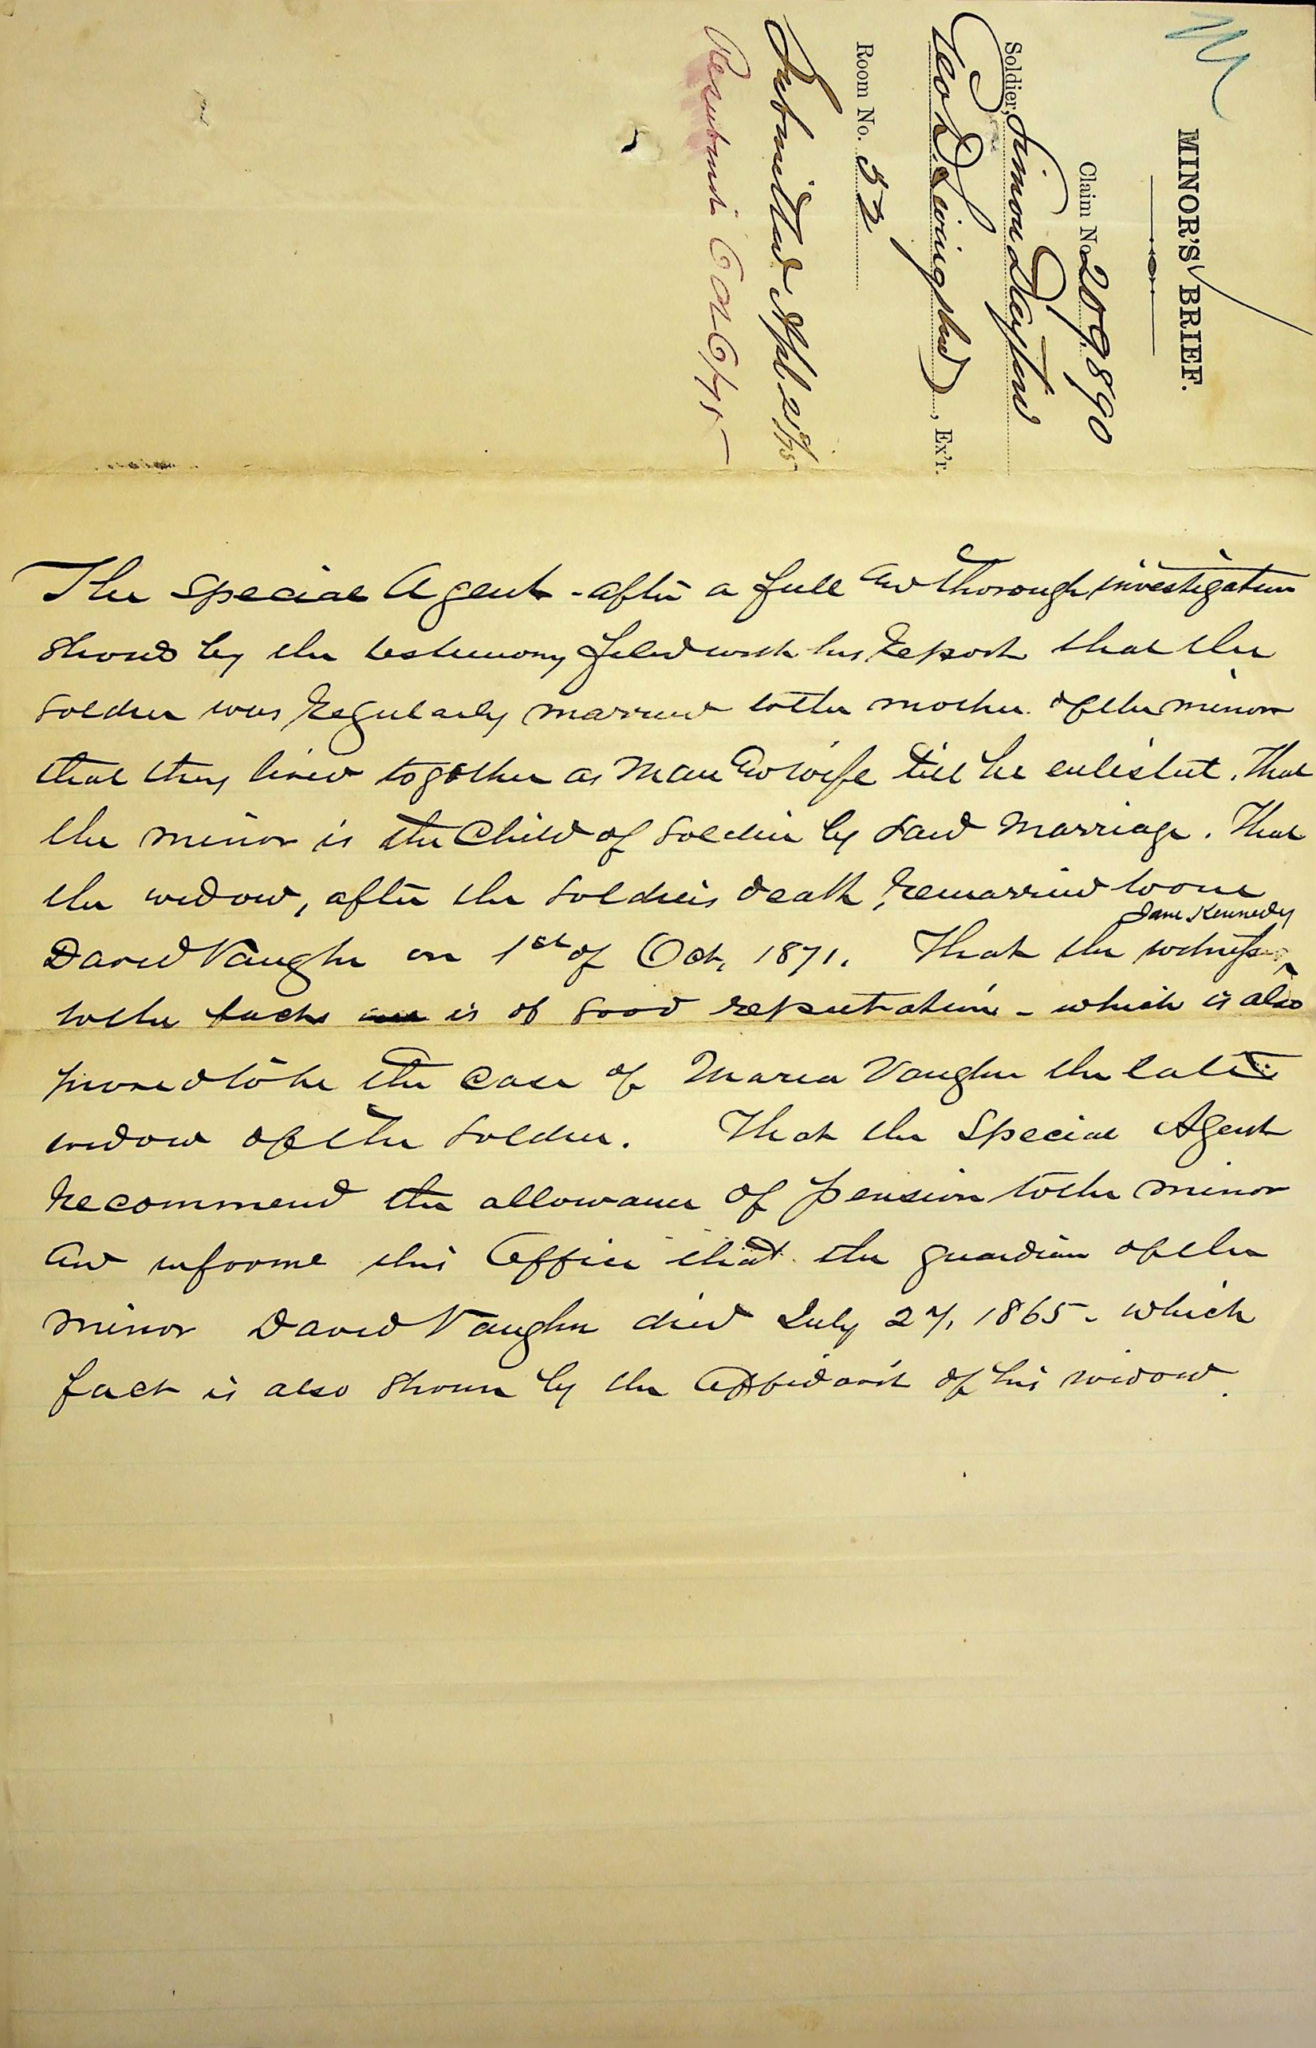 M
MINOR'S BRIEF.
Claim No. 209.890
Soldier, Simon Dayton
Geo D. Livingston, Ex'r.
Room No. 52
Submitted Apl. 28/75
The Special Agent - after a full and thorough investigation
shows by the testimony filed with his report that the
soldier was regularly married to the mother of the minor
that they lived together as man and wife till he enlistet. That
the minor is the child of soldier by said marriage. That
the widow, after the soldiers death, remarried to one
David Vaughn on 1st of Oct, 1871. That the witness
Jane Kennedy
to the facts is of good reputation - which is also
proved to be the case of Maria Vaughn the late
widow of the soldier. That the Special Agent
recommend the allowance of pension to the minor
and informe this Office that the guardian of the
minor David Vaughn died July 27, 1865 - which
fact is also shown by the affidavit of his widow.